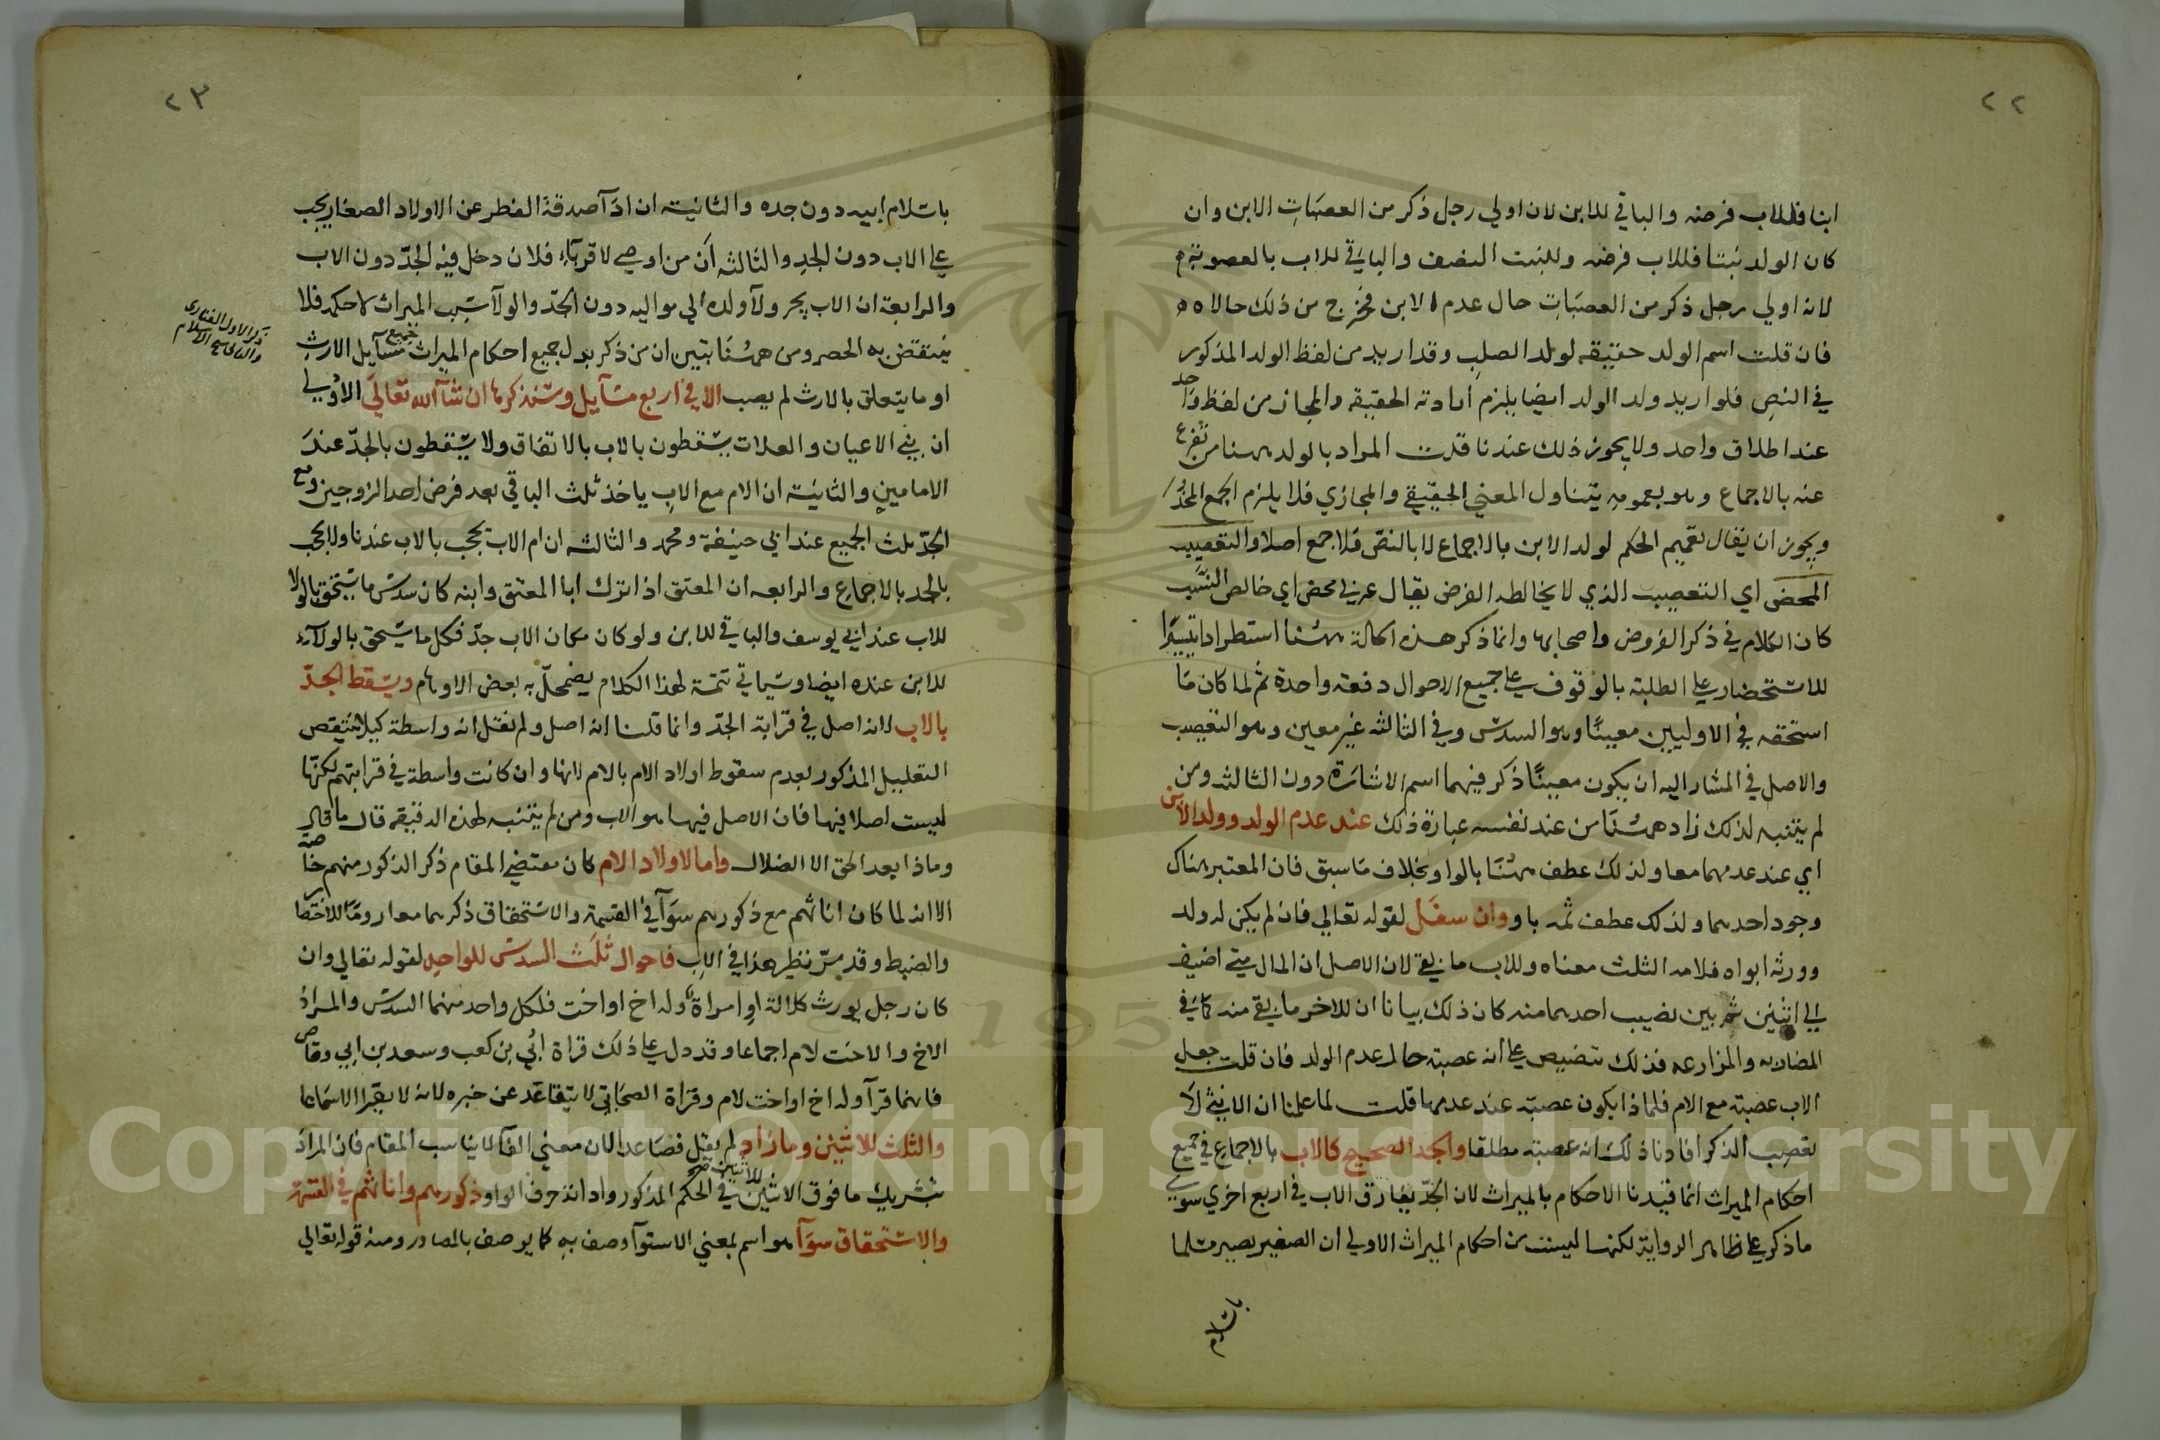 ٢٢
ابنا فللاب فرضه والباقي للابن لان اولي رجل ذكر من العصبات الابن وان
كان الولد بنتا فللاب فرضه وللبنت النصف والباقي للاب بالعصوبة
لانه اولي رجل ذكر من العصبات حال عدم الابن فخرج من ذلك حالاه
فان قلت اسم الولد حقيقه لولد الصلب وقد اريد من لفظ الولد المذكور
في النص فلو اريد ولد الولد ايضا يلزم ارادة الحقيقه والمجاز من لفظ واحد
عند اطلاق واحد ولا يجوز ذلك عندنا قلت المراد بالولد ههنا من تفرع
عنه بالاجماع وهو بعمومه يتناول المعني الحقيقي والمجازي فلا يلزم الجمع
ويجوز ان يقال تعميم الحكم لولد الابن بالاجماع لا بالنص فلا جمع اصلا والتعصيب
المحض اي التعصيب الذي لا يخالطه الفرض يقال عربي محض اي خالص النسب
كان الكلام في ذكر الفروض واصحابها وانما ذكر هذه الحالة ههنا استطرادا تيسيرا
للاستحضار علي الطلبة بالوقوف علي جميع الاحوال دفعة واحدة ثم لما كان ما
استحقه في الاوليين معينا وهو السدس وفي الثالثه غير معين وهو التعصيب
والاصل في المشار اليه ان يكون معينا ذكر فيهما اسم الاشارة دون الثالثه ومن
لم يتنبه لذلك زاد ههنا من عند نفسه عبارة ذلك عند عدم الولد وولد الابن
اي عند عدمهما معا ولذلك عطف ههنا بالواو بخلاف ما سبق فان المعتبر هناك
وجود احدهما ولذلك عطف ثمه باو وان سفل لقوله تعالي فان لم يكن له ولد
وورثه ابواه فلامه الثلث معناه وللاب ما بقي لان الاصل ان المال متي اضيف
الي اثنين ثم بين نصيب احدهما منه كان ذلك بيانا ان للاخر ما بقي منه كما في
المضاربه والمزارعه فذلك تنصيص علي انه عصبة حال عدم الولد فان قلت جعل
الاب عصبة مع الام فلماذا يكون عصبة عند عدمها قلت لما علمنا ان الانثي لا
تعصب الذكر افادنا ذلك انه عصبة مطلقا والجد الصحيح كالاب بالاجماع في جميع
احكام الميراث انما قيدنا الاحكام بالميراث لان الجد يفارق الاب في اربع اخري سوي
ما ذكر علي ظاهر الرواية لكنها ليست من احكام الميراث الاولي ان الصغير يصير مسلما
باسلام
٢٣
باسلام ابيه دون جده والثانية ان اداء صدقة الفطر عن الاولاد الصغار يجب
علي الاب دون الجد والثالثه ان من اوصي لاقرباء فلان دخل فيه الجد دون الاب
والرابعة ان الاب يجر ولاء ولده الي مواليه دون الجد والولاء سبب الميراث لا حكمه فلا
ينتقض به الحصر ومن ههنا تبين ان من ذكر بدل جميع احكام الميراث جميع مسايل الارث
او ما يتعلق بالارث لم يصب الا في اربع مسايل وسنذكرها ان شاء الله تعالي الاولي
ان بني الاعيان والعلات يسقطون بالاب بالاتفاق ولا يسقطون بالجد عند
الامامين والثانية ان الام مع الاب ياخذ ثلث الباقي بعد فرض احد الزوجين ومع
الجد ثلث الجميع عند ابي حنيفة ومحمد والثالثه ان ام الاب تحجب بالاب عندنا ولا تحجب
بالجد بالاجماع والرابعه ان المعتق اذا ترك ابا المعتق وابنه كان سدس ما يستحق بالولا
للاب عند ابي يوسف والباقي للابن ولو كان مكان الاب جد فكل ما يستحق بالولاء
للابن عنده ايضا وسياتي تتمة لهذا الكلام يضمحل به بعض الاوهام ويسقط الجد
بالاب لانه اصل في قرابة الجد وانما قلنا انه اصل ولم نقل انه واسطة كيلا ينتقص
التعليل المذكور بعدم سقوط اولاد الام بالام لانها وان كانت واسطة في قرابتهم لكنها
ليست اصلا فيها فان الاصل فيها هو الاب ومن لم يتنبه لهذه الدقيقه قال ما قال
وماذا بعد الحق الا الضلال واما لاولاد الام كان مقتضي المقام ذكر الذكور منهم خاصة
الا انه لما كان اناثهم مع ذكورهم سواء في القسمة والاستحقاق ذكرهما معا روما للاختصار
والضبط وقد مر نظير هذا في الاب فاحوال ثلث السدس للواحد لقوله تعالي وان
كان رجل يورث كلالة او امراة وله اخ او اخت فلكل واحد منهما السدس والمراد
الاخ والاخت لام اجماعا وقد دل علي ذلك قراة ابي بن كعب وسعد بن ابي وقاص
فانهما قرآ وله اخ او اخت لام وقراة الصحابي لا يتقاعد عن خبره لانه لا يقرا الا سماعا
والثلث للاثنين وما زاد لم يقل فصاعدا لان معني الفاء لا يناسب المقام فان المراد
تشريك ما فوق الاثنين للاثنين صح في الحكم المذكور واداته حرف الواو ذكورهم واناثهم في القسمة
والاستحقاق سواء هو اسم بمعني الاستواء وصف به كما يوصف بالمصادر ومنه قوله تعالي
Copyright © King Saud University
195